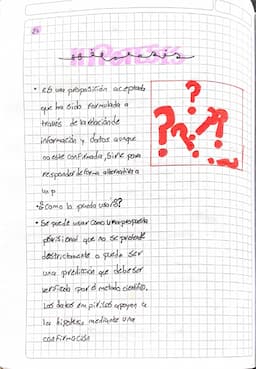 Hipótesis
• Es una proposición aceptada
que ha sido formulada a
través de la relación de
información y datos aunque
no este confirmada, Sirve para
responder de forma alternativa a
un p
• ¿Como la puedo usar?
• Se puede usar como una propuesta
provisional que no se pretende
o puede ser
una predicción que debe ser
verificada por el metodo cientifico,
Los datos empiricos apoyan a
la hipotesis mediante una
confirmación